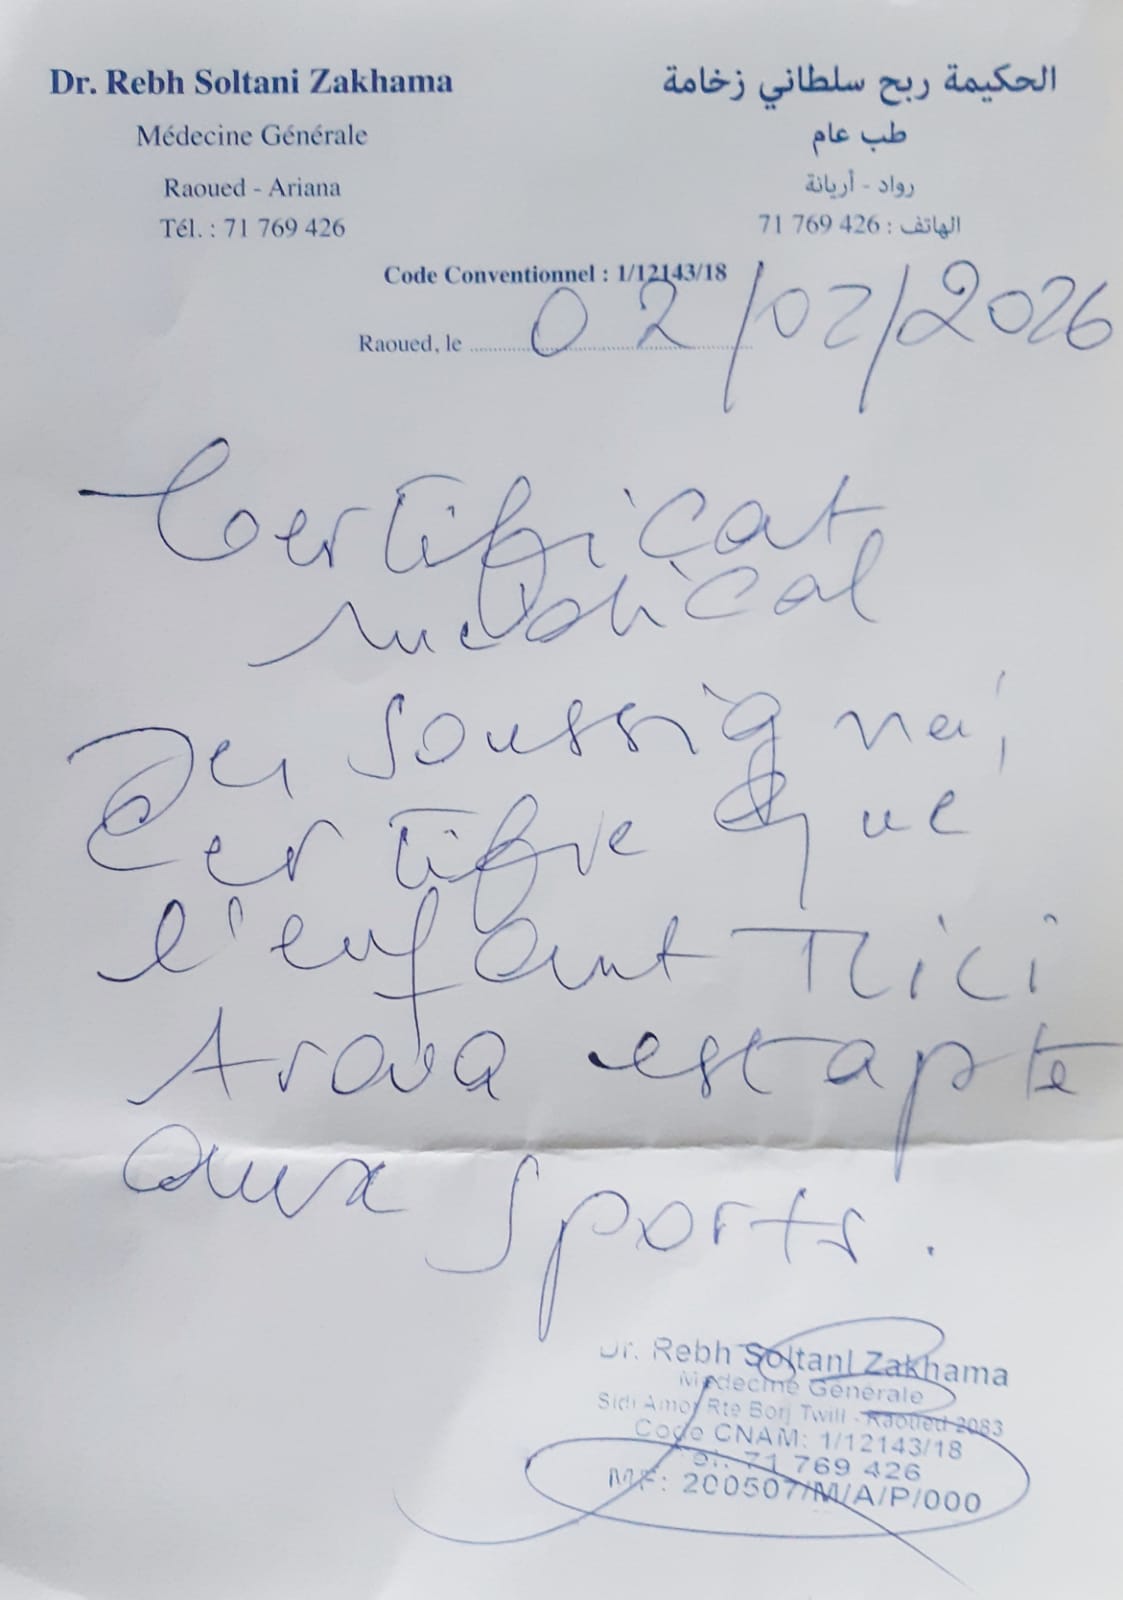 Dr. Rebh Soltani Zakhama
Médecine Générale
Raoued - Ariana
Tél. : 71 769 426
الحكيمة ربح سلطاني زخامة
طب عام
رواد - أريانة
الهاتف : 426 769 71
Code Conventionnel : 1/12143/18
Raoued, le 02/02/2026
Certificat
médical
Je soussigné,
Certifie que
l'enfant Tlici
est apte
aux sports.
Dr. Rebh Soltani Zakhama
Médecine Générale
Sidi Amor Rte Borj Twill - Raoued 2083
Code CNAM: 1/12143/18
Tel: 71 769 426
MF: 200507/M/A/P/000